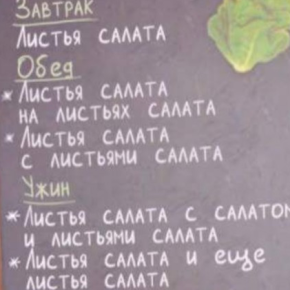 Завтрак
Листья салата
Обед
* Листья салата
на листьях салата
* Листья салата
с листьями салата
Ужин
* Листья салата с салатом
и листьями салата
* Листья салата и еще
листья салата